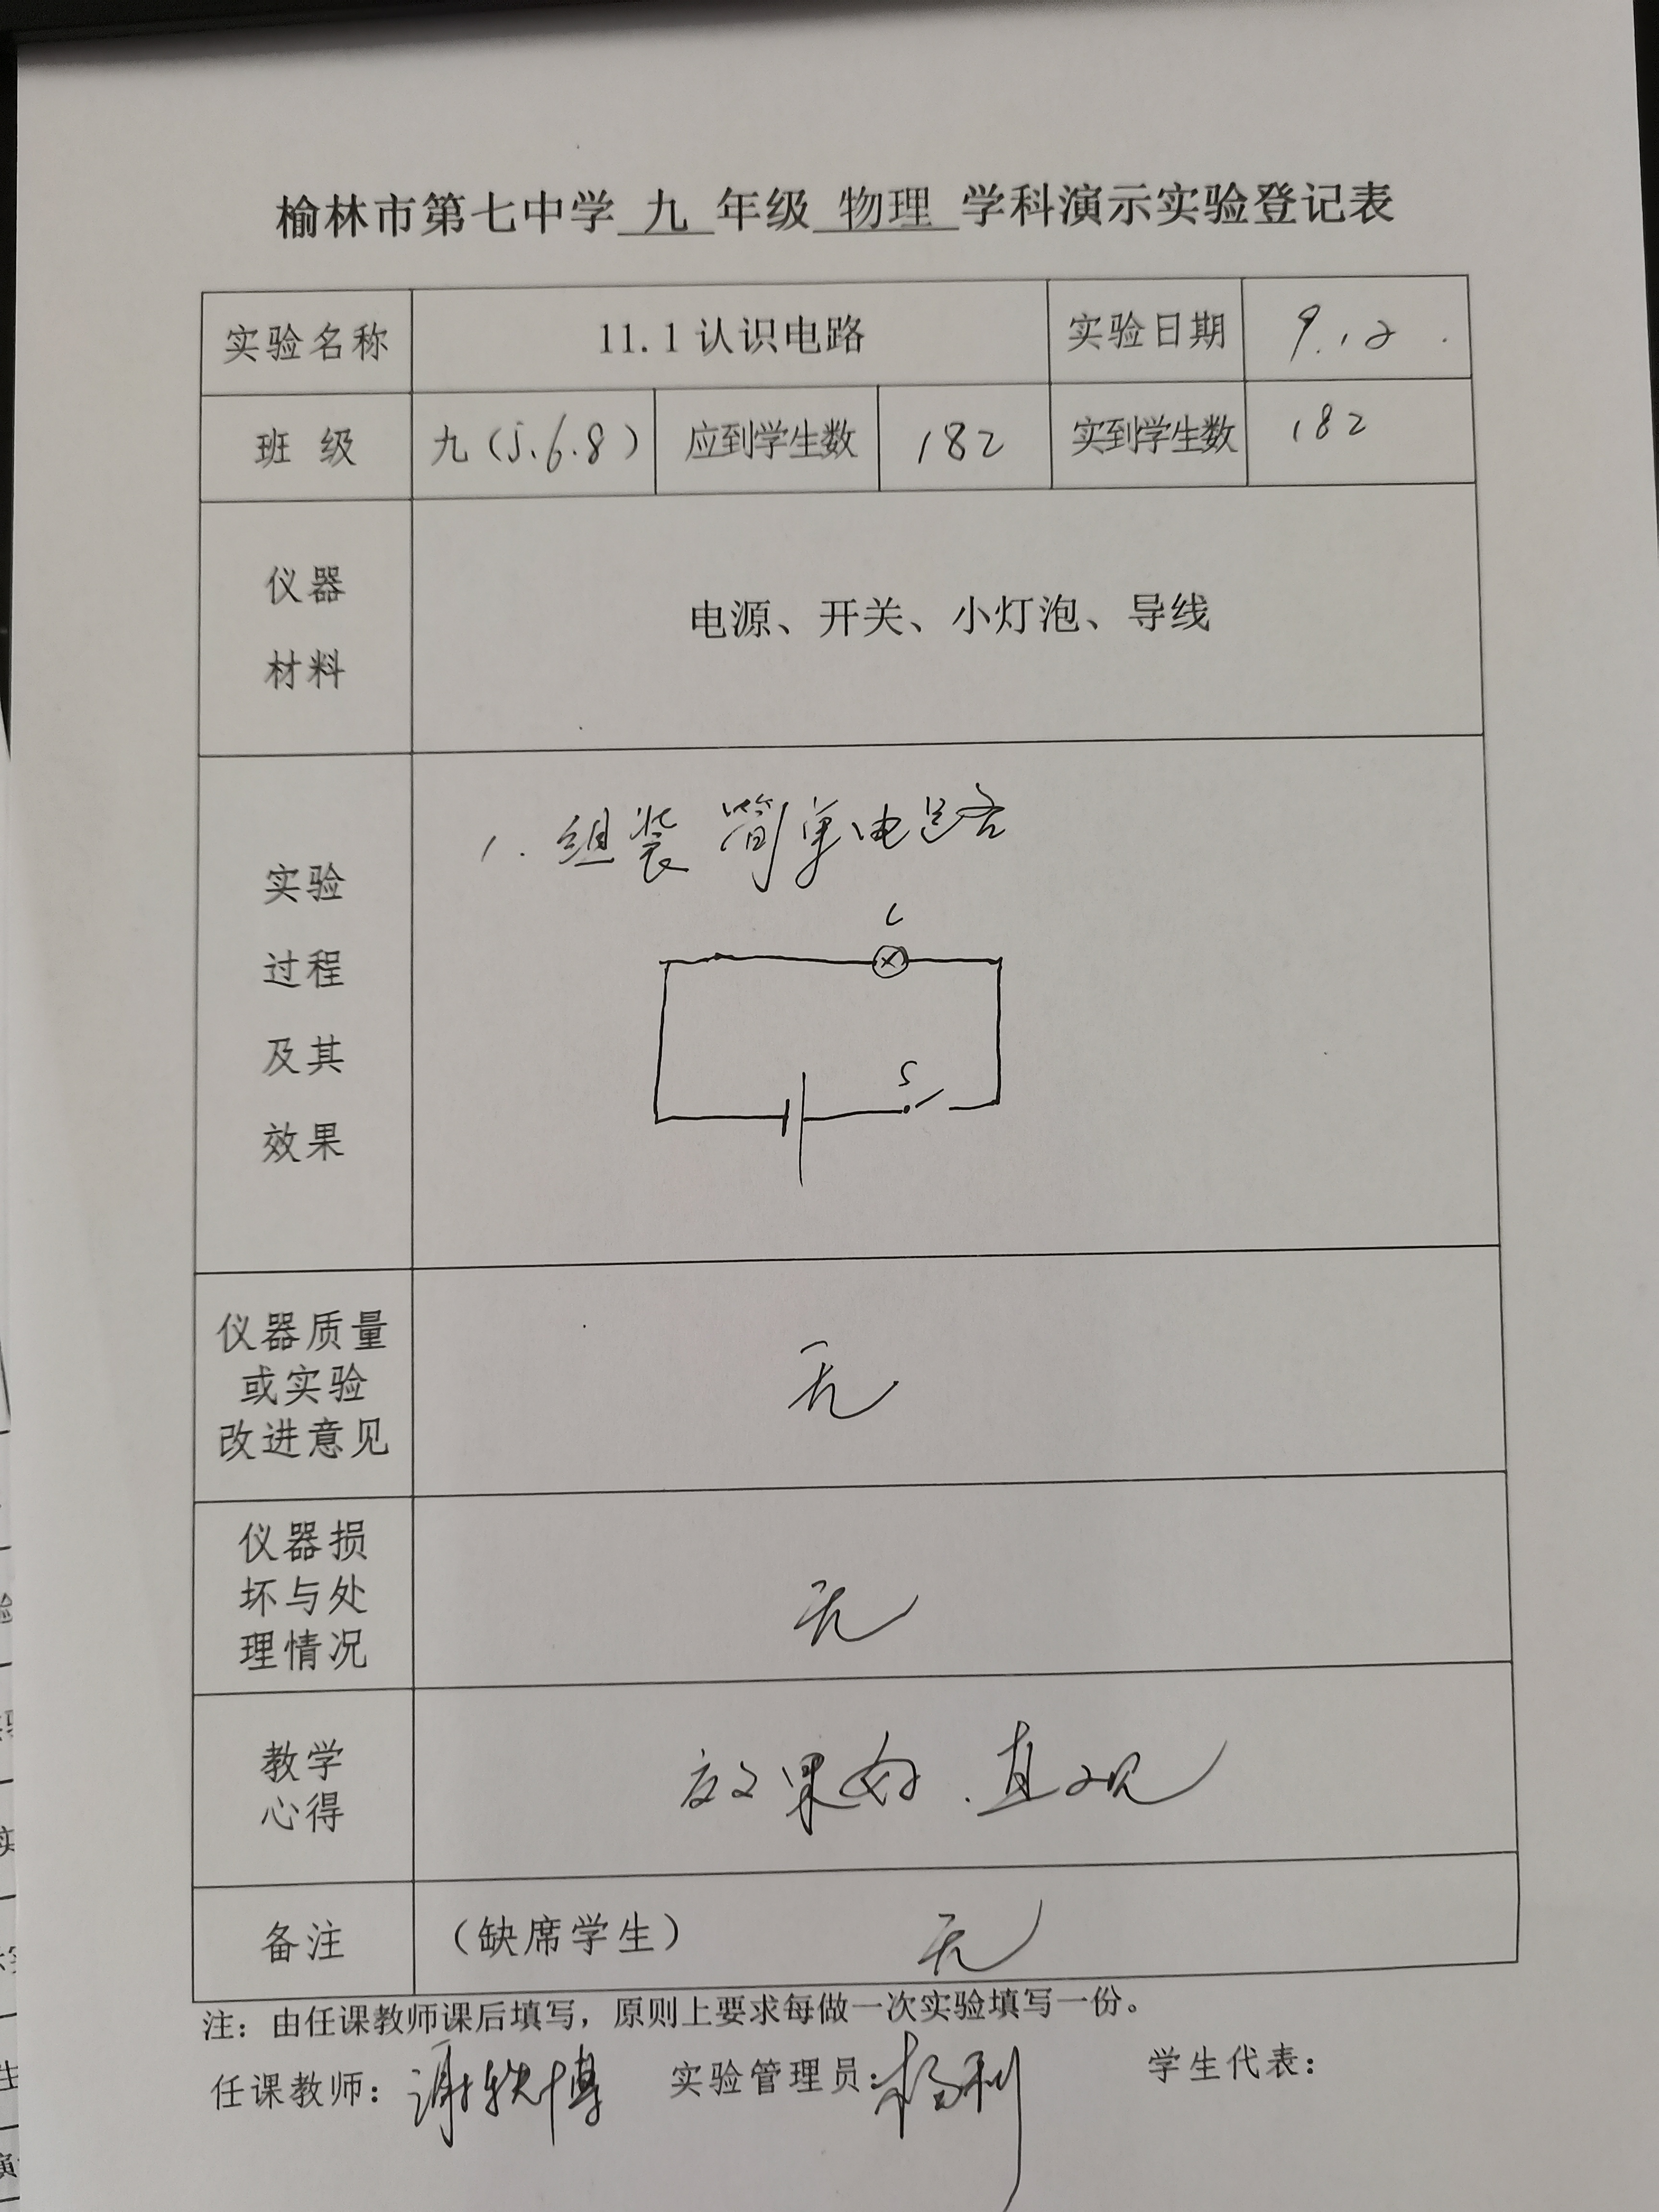 榆林市第七中学 九 年级 物理 学科演示实验登记表
实验名称 11.1 认识电路 实验日期 9.12.
班 级 九(5.6.8) 应到学生数 182 实到学生数 182
仪器
材料
电源、开关、小灯泡、导线
实验
过程
及其
效果
1. 组装简单电路
L
S
仪器质量
或实验
改进意见
无
仪器损
坏与处
理情况
无
教学
心得
效果好.直观
备注 (缺席学生) 无
注：由任课教师课后填写，原则上要求每做一次实验填写一份。
任课教师：谢博 实验管理员：杨利 学生代表：